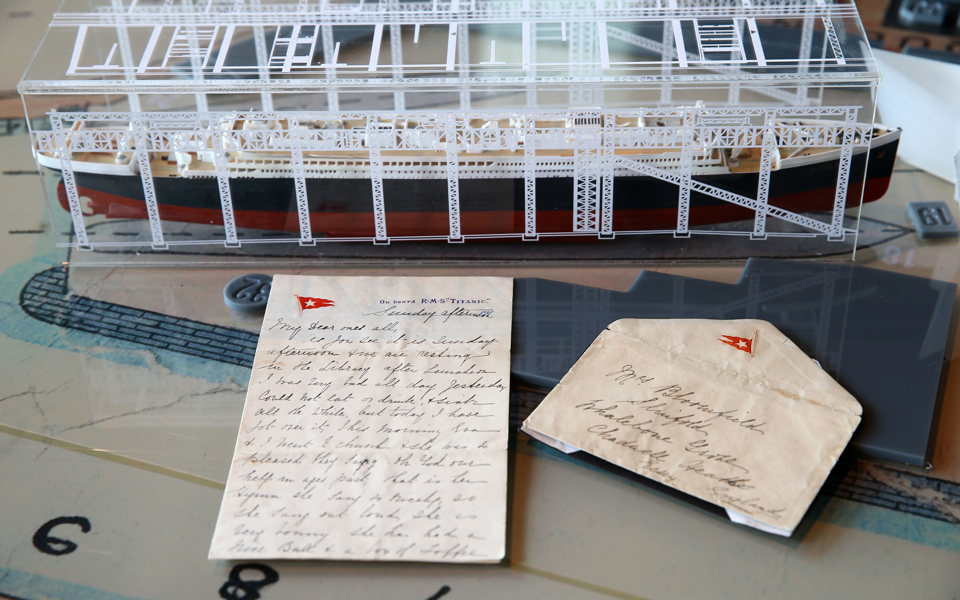 61
26
On board R·M·S "TITANIC."
Sunday afternoon
My Dear ones all,
as you see it is Sunday
afternoon & we are resting
in the Library after Luncheon
I was very bad all day Yesterday
Could not eat or drink, & sick
all the while, but today I have
got over it, this morning Eva
& I went to church & she was so
pleased they sang Oh God our
help in ages past, that is her
hymn she sang so nicely, so
she sang out loudly she is
very bonny. she has had a
nice Ball & a box of Toffee
Mrs Bloomfield
Whalebone Grove
Chadwell Heath
Essex England
6
8